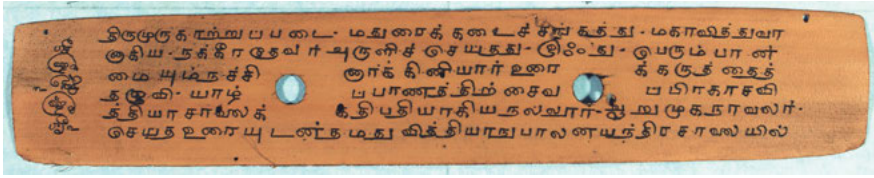 திருமுருகாற்றுப்படை- மதுரைக் கடைச்சங்கத்து- மகாவித்துவா
னாகிய- நக்கீரதேவர் அருளிச் செய்தது- இஃது- பெரும்பான்
மையும் நச்சி னார்க்கினியார் உரை க் கருத்தைத்
தழுவி- யாழ் ப்பாணத்தில் சைவ ப்பிரகாசவி
த்தியாசாலைக் கதிபதியாகிய நல்லூர்- ஆறுமுகநாவலர்-
செய்த உரையுடன் தமது வித்தியாநுபாலனயந்திரசாலையில்